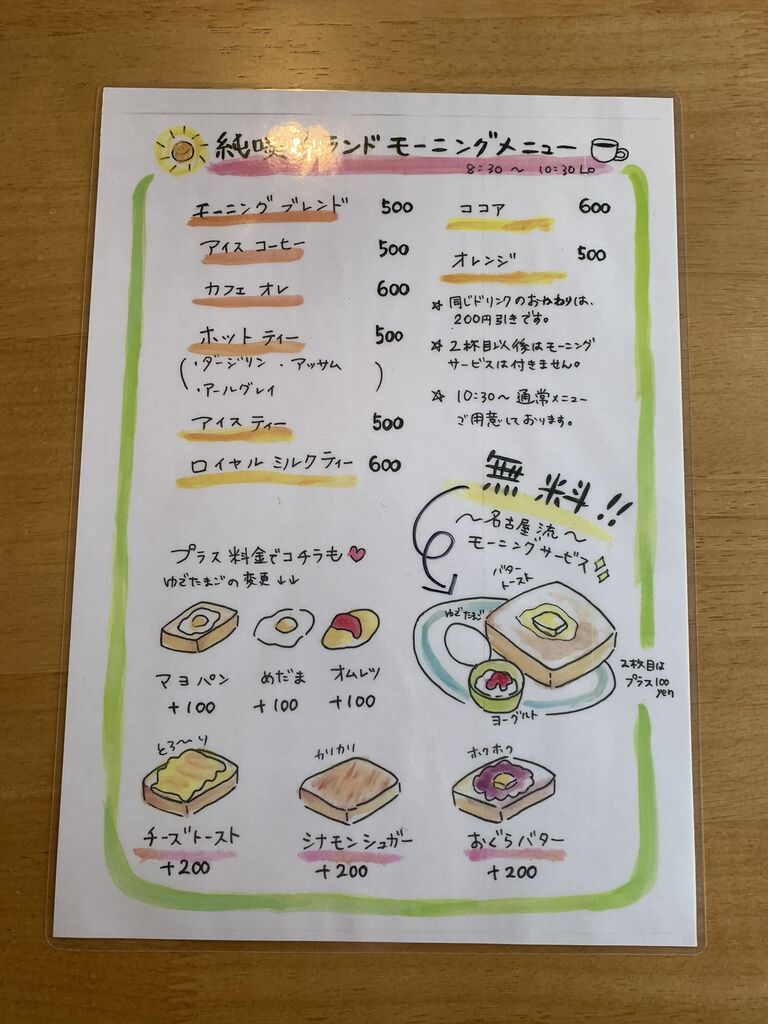 純喫 ランド モーニングメニュー
8:30～ 10:30Lo
モーニング ブレンド 500
アイス コーヒー 500
カフェ オレ 600
ホット ティー 500
(・ダージリン ・アッサム
・アールグレイ)
アイス ティー 500
ロイヤル ミルクティー 600
ココア 600
オレンジ 500
☆ 同じドリンクのおかわりは、
200円引きです。
☆ 2杯目以後はモーニング
サービスは付きません。
☆ 10:30～ 通常メニュー
ご用意しております。
無料!!
～名古屋流～
モーニングサービス
バター
トースト
ゆでたまご
ヨーグルト
2枚目は
プラス100
yen
プラス料金でコチラも♥
ゆでたまごの変更↓↓
マヨパン
+100
めだま
+100
オムレツ
+100
とろ～り
チーズトースト
+200
カリカリ
シナモンシュガー
+200
ホクホク
おぐらバター
+200